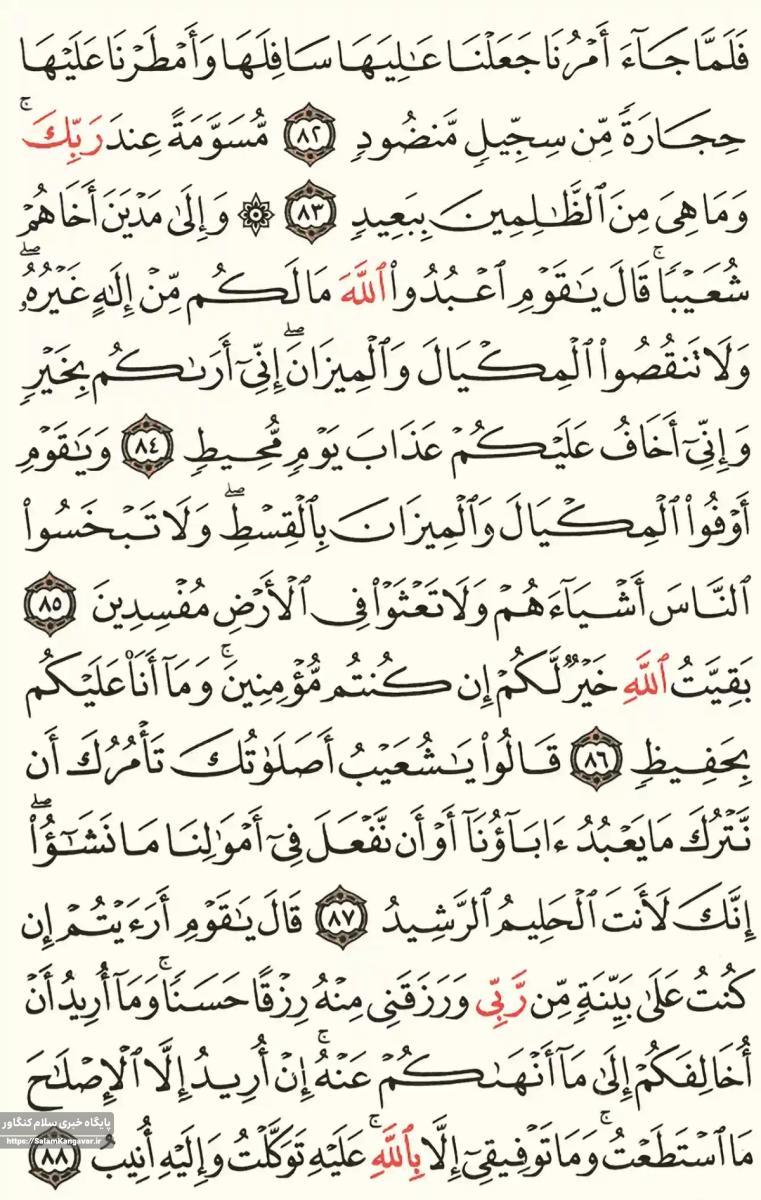 فَلَمَّا جَآءَ أَمْرُنَا جَعَلْنَا عَٰلِيَهَا سَافِلَهَا وَأَمْطَرْنَا عَلَيْهَا
حِجَارَةً مِّن سِجِّيلٍ مَّنضُودٍ ٨٢ مُّسَوَّمَةً عِندَ رَبِّكَۖ
وَمَا هِىَ مِنَ ٱلظَّٰلِمِينَ بِبَعِيدٍ ٨٣ ۞ وَإِلَىٰ مَدْيَنَ أَخَاهُمْ
شُعَيْبًاۚ قَالَ يَٰقَوْمِ ٱعْبُدُوا۟ ٱللَّهَ مَا لَكُم مِّنْ إِلَٰهٍ غَيْرُهُۥۖ
وَلَا تَنقُصُوا۟ ٱلْمِكْيَالَ وَٱلْمِيزَانَۖ إِنِّىٓ أَرَىٰكُم بِخَيْرٍ
وَإِنِّىٓ أَخَافُ عَلَيْكُمْ عَذَابَ يَوْمٍ مُّحِيطٍ ٨٤ وَيَٰقَوْمِ
أَوْفُوا۟ ٱلْمِكْيَالَ وَٱلْمِيزَانَ بِٱلْقِسْطِۖ وَلَا تَبْخَسُوا۟
ٱلنَّاسَ أَشْيَآءَهُمْ وَلَا تَعْثَوْا۟ فِى ٱلْأَرْضِ مُفْسِدِينَ ٨٥
بَقِيَّتُ ٱللَّهِ خَيْرٌ لَّكُمْ إِن كُنتُم مُّؤْمِنِينَۚ وَمَآ أَنَا۠ عَلَيْكُم
بِحَفِيظٍ ٨٦ قَالُوا۟ يَٰشُعَيْبُ أَصَلَوٰتُكَ تَأْمُرُكَ أَن
نَّتْرُكَ مَا يَعْبُدُ ءَابَآؤُنَآ أَوْ أَن نَّفْعَلَ فِىٓ أَمْوَٰلِنَا مَا نَشَٰٓؤُا۟ۖ
إِنَّكَ لَأَنتَ ٱلْحَلِيمُ ٱلرَّشِيدُ ٨٧ قَالَ يَٰقَوْمِ أَرَءَيْتُمْ إِن
كُنتُ عَلَىٰ بَيِّنَةٍ مِّن رَّبِّى وَرَزَقَنِى مِنْهُ رِزْقًا حَسَنًاۚ وَمَآ أُرِيدُ أَنْ
أُخَالِفَكُمْ إِلَىٰ مَآ أَنْهَىٰكُمْ عَنْهُۚ إِنْ أُرِيدُ إِلَّا ٱلْإِصْلَٰحَ
مَا ٱسْتَطَعْتُۚ وَمَا تَوْفِيقِىٓ إِلَّا بِٱللَّهِۚ عَلَيْهِ تَوَكَّلْتُ وَإِلَيْهِ أُنِيبُ ٨٨
پایگاه خبری سلام کنگاور
https://SalamKangavar.ir